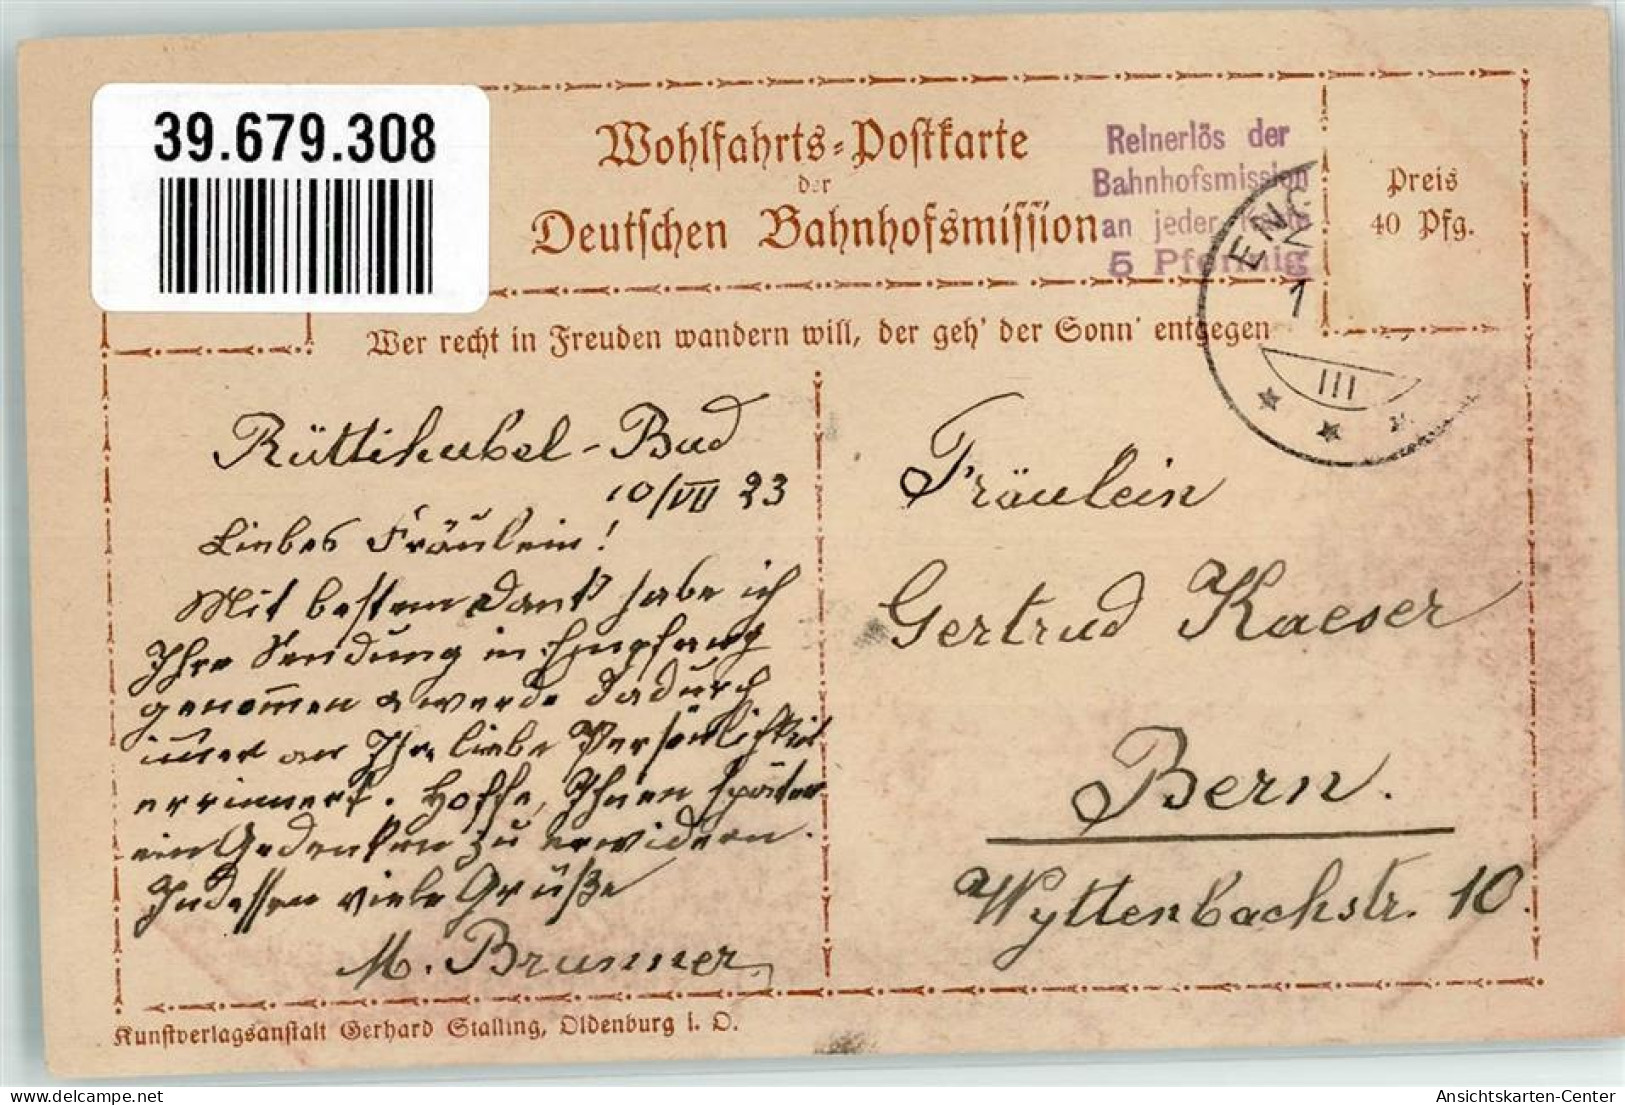 39.679.308
Wohlfahrts-Postkarte
der
Deutschen Bahnhofsmission
Reinerlös der
Bahnhofsmission
an jeder
5 Pfennig
Preis
40 Pfg.
ENG
1
III
Wer recht in Freuden wandern will, der geh' der Sonn' entgegen
Rüttihubel-Bad
10/VII 23
Liebes Fräulein!
Mit bestem Dank habe ich
Ihre Sendung in Empfang
genommen & werde dadurch
immer an Ihre liebe Persönlichkeit
erinnert. Hoffe, Ihnen später
ein Gedenken zu erwidern.
Indessen viele Grüße
M. Brunner
Fräulein
Gertrud Kaeser
Bern.
Wyttenbachstr. 10.
Kunstverlagsanstalt Gerhard Stalling, Oldenburg i. O.
delcampe.net
Ansichtskarten-Center